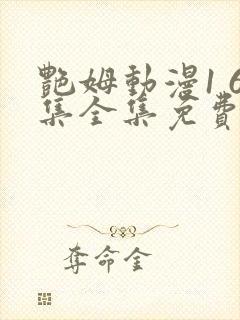 艷姆動漫1 6
集全集免費
奪命金